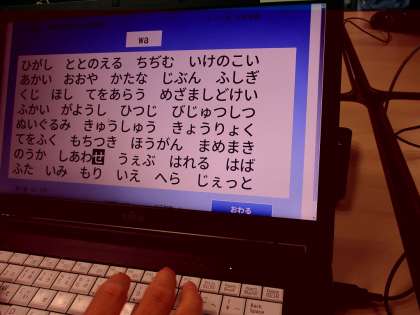 wa
ひがし　ととのえる　ちぢむ　いけのこい
あかい　おおや　かたな　じぶん　ふしぎ
くじ　ほし　てをあらう　めざましどけい
ふかい　がようし　ひつじ　びじゅつしつ
ぬいぐるみ　きゅうしゅう　きょうりょく
てをふく　もちつき　ほうがん　まめまき
のうか　しあわせ　うぇぶ　はれる　はば
ふた　いみ　もり　いえ　へら　じぇっと
おわる